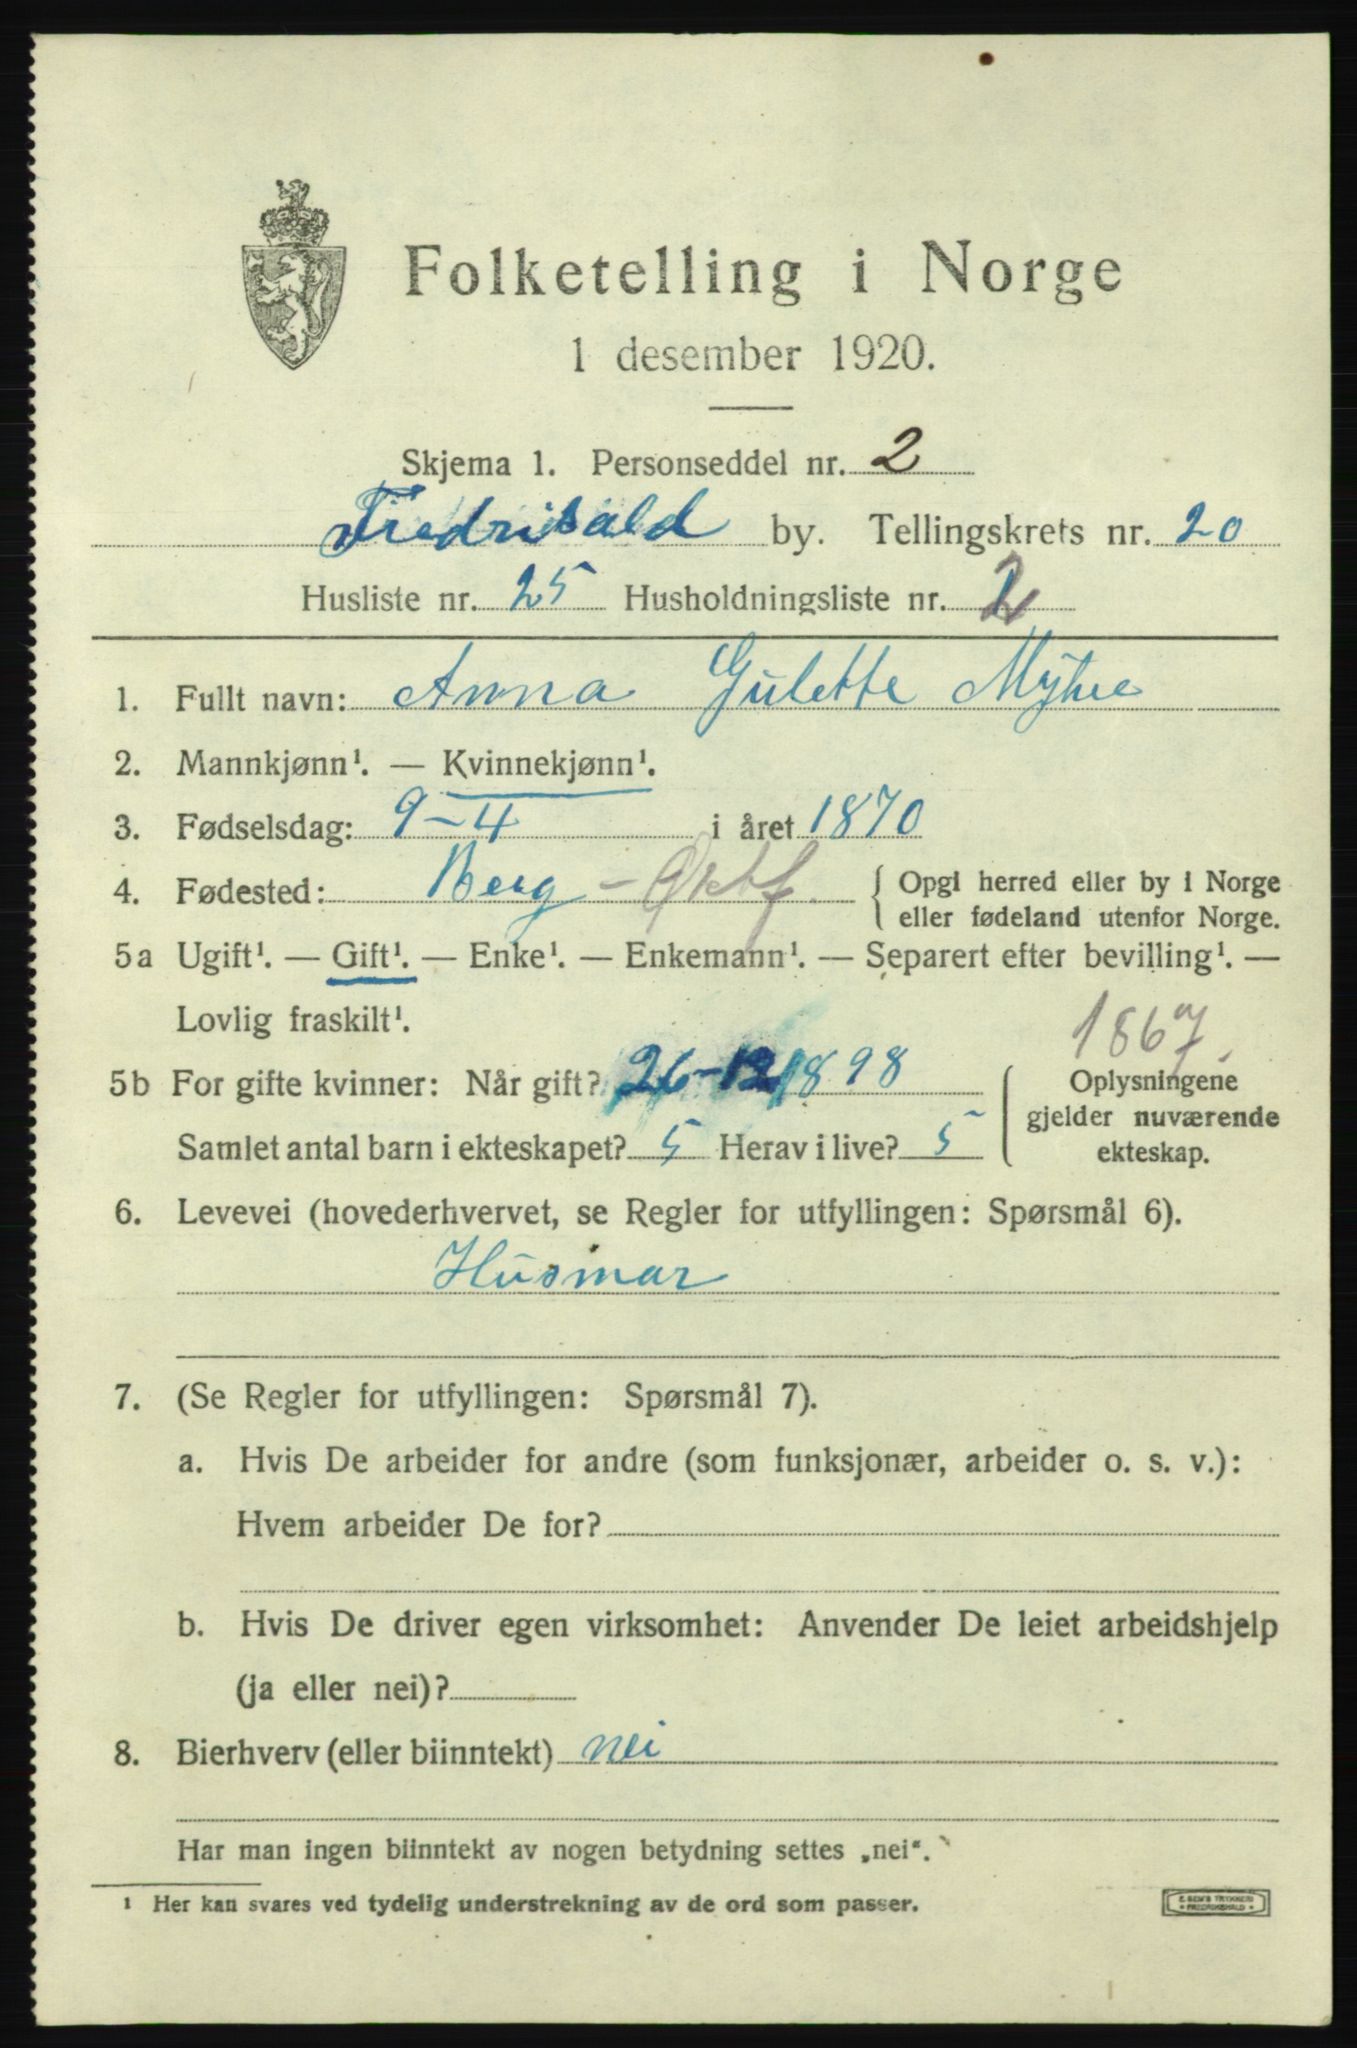 Folketelling i Norge
1 desember 1920.
Skjema 1. Personseddel nr. 2
Fredriksald by. Tellingskrets nr. 20
Husliste nr. 25 Husholdningsliste nr. 2
1. Fullt navn: Anna Gulette Myhre
2. Mannkjønn¹. — Kvinnekjønn¹.
3. Fødselsdag: 9-4 i året 1870
4. Fødested: Berg - Østf. { Opgi herred eller by i Norge
eller fødeland utenfor Norge.
5a Ugift¹. — Gift¹. — Enke¹. — Enkemann¹. — Separert efter bevilling¹. —
Lovlig fraskilt¹.
1867.
5b For gifte kvinner: Når gift? 26-12 1898
Samlet antal barn i ekteskapet? 5 Herav i live? 5
Oplysningene
gjelder nuværende
ekteskap.
6. Levevei (hovederhvervet, se Regler for utfyllingen: Spørsmål 6).
Husmor
7. (Se Regler for utfyllingen: Spørsmål 7).
a. Hvis De arbeider for andre (som funksjonær, arbeider o. s. v.):
Hvem arbeider De for?
b. Hvis De driver egen virksomhet: Anvender De leiet arbeidshjelp
(ja eller nei)?
8. Bierhverv (eller biinntekt) nei
Har man ingen biinntekt av nogen betydning settes „nei“.
¹ Her kan svares ved tydelig understrekning av de ord som passer.
E. SEM'S TRYKKERI
* FREDRIKSHALD *